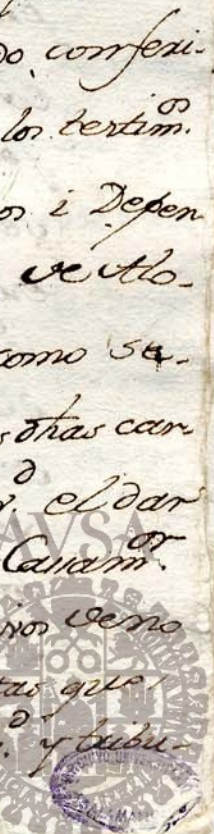 do conferi-
los testim.os
os i Depen
se Alo-
como se-
s dhas car-
r.d el dar
Cauam.or
ivos veno
tas que
.d y tribu-
AVSA